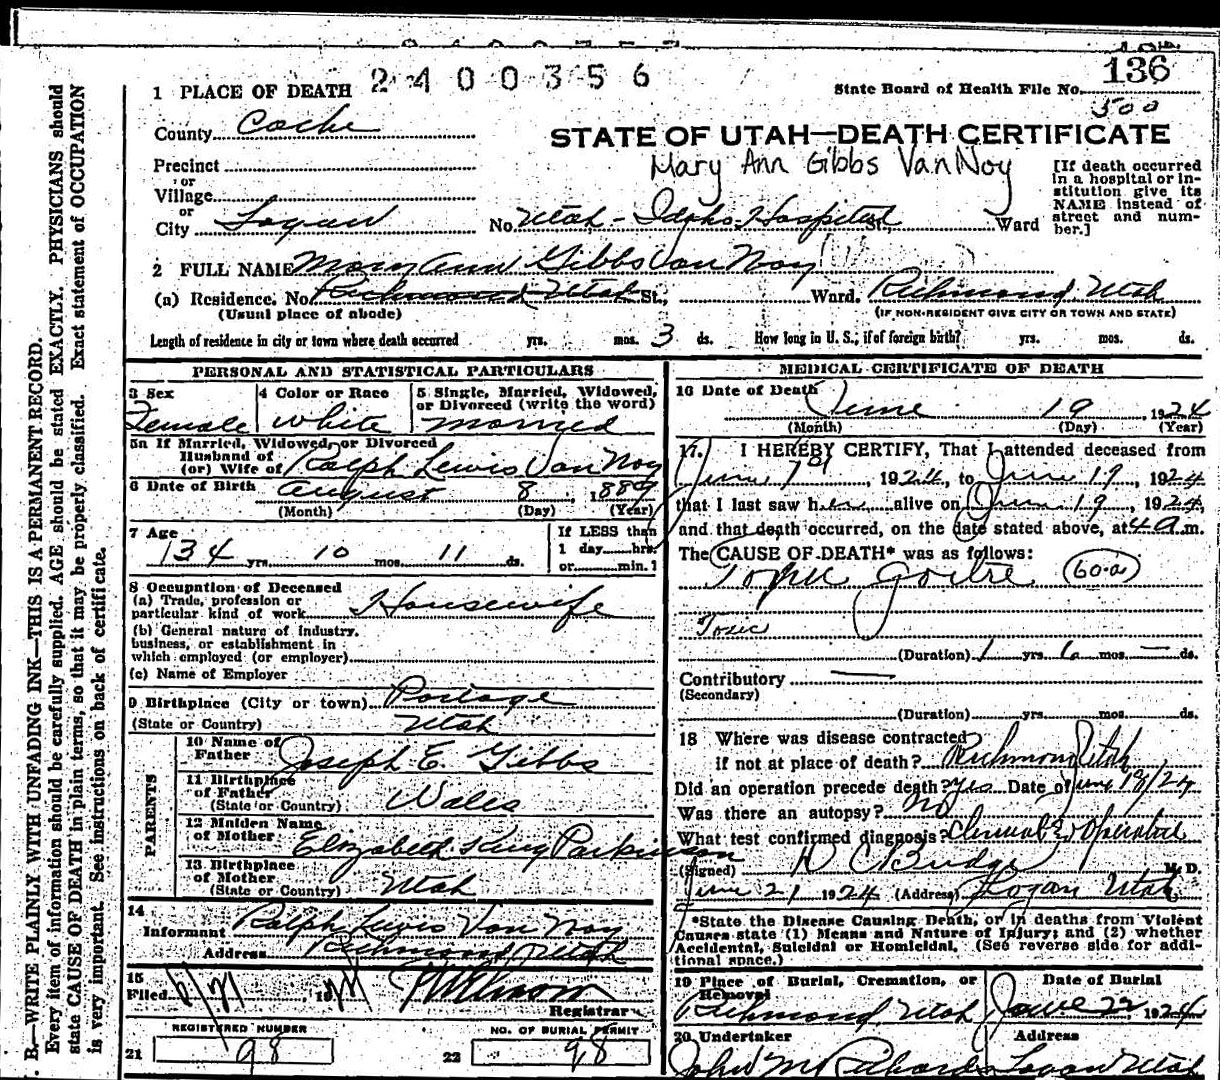 2400356
136
State Board of Health File No.
500
1 PLACE OF DEATH
County Cache
STATE OF UTAH—DEATH CERTIFICATE
Mary Ann Gibbs VanNoy
Precinct
or
Village
or
City Logan
No. Utah-Idaho Hospital St., Ward
[If death occurred in a hospital or in-
stitution give its
NAME instead of
street and num-
ber.]
2 FULL NAME Mary Ann Gibbs Van Noy
(a) Residence. No. Richmond Utah St., Ward. Richmond, Utah
(Usual place of abode) (IF NON-RESIDENT GIVE CITY OR TOWN AND STATE)
Length of residence in city or town where death occurred yrs. mos. 3 ds. How long in U. S., if of foreign birth? yrs. mos. ds.
PERSONAL AND STATISTICAL PARTICULARS
3 Sex
Female
4 Color or Race
white
5 Single, Married, Widowed,
or Divorced (write the word)
married
5a If Married, Widowed, or Divorced
Husband of
(or) Wife of Ralph Lewis Van Noy
6 Date of Birth August 8, 1889
(Month) (Day) (Year)
7 Age
34 yrs. 10 mos. 11 ds.
If LESS than
1 day......hrs.
or......min.
8 Occupation of Deceased
(a) Trade, profession or
particular kind of work Housewife
(b) General nature of industry,
business, or establishment in
which employed (or employer)
(c) Name of Employer
9 Birthplace (City or town) Portage
(State or Country) Utah
PARENTS
10 Name of
Father Joseph E. Gibbs
11 Birthplace
of Father
(State or Country) Wales
12 Maiden Name
of Mother Elizabeth King Parkinson
13 Birthplace
of Mother
(State or Country) Utah
14
Informant Ralph Lewis Van Noy
Address Richmond Utah
15
Filed 6/21, 19
Registrar
REGISTERED NUMBER
21 98
NO. OF BURIAL PERMIT
22 98
MEDICAL CERTIFICATE OF DEATH
16 Date of Death June 19, 1924
(Month) (Day) (Year)
17. I HEREBY CERTIFY, That I attended deceased from
June 1st, 1924, to June 19, 1924
that I last saw her alive on June 19, 1924,
and that death occurred, on the date stated above, at 4 a.m.
The CAUSE OF DEATH* was as follows:
Goitre (60-a)
Toxic
(Duration) 1 yrs. 6 mos. — ds.
Contributory —
(Secondary)
(Duration) yrs. mos. ds.
18 Where was disease contracted
if not at place of death? Richmond Utah
Did an operation precede death? Yes Date of June 18/24
Was there an autopsy? No
What test confirmed diagnosis? Clinical &
(Signed) D C Budge M. D.
June 21 1924 (Address) Logan Utah
*State the Disease Causing Death, or in deaths from Violent
Causes state (1) Means and Nature of Injury; and (2) whether
Accidental, Suicidal or Homicidal. (See reverse side for addi-
tional space.)
19 Place of Burial, Cremation, or
Removal
Richmond, Utah
Date of Burial
June 22, 1924
20 Undertaker Address
John M. Richards Logan Utah
B.—WRITE PLAINLY WITH UNFADING INK—THIS IS A PERMANENT RECORD.
Every item of information should be carefully supplied. AGE should be stated EXACTLY. PHYSICIANS should
state CAUSE OF DEATH in plain terms, so that it may be properly classified. Exact statement of OCCUPATION
is very important. See instructions on back of certificate.